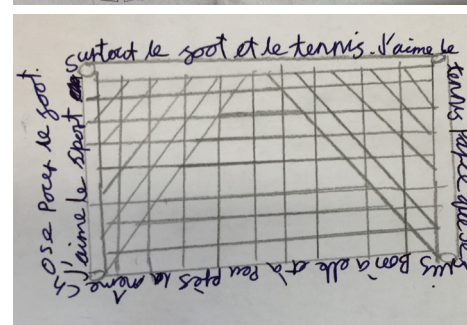 J'aime le sport
surtout le foot et le tennis. J'aime le
tennis parce que je
suis bon à elle et à peu près la même ch
ose pour le foot.